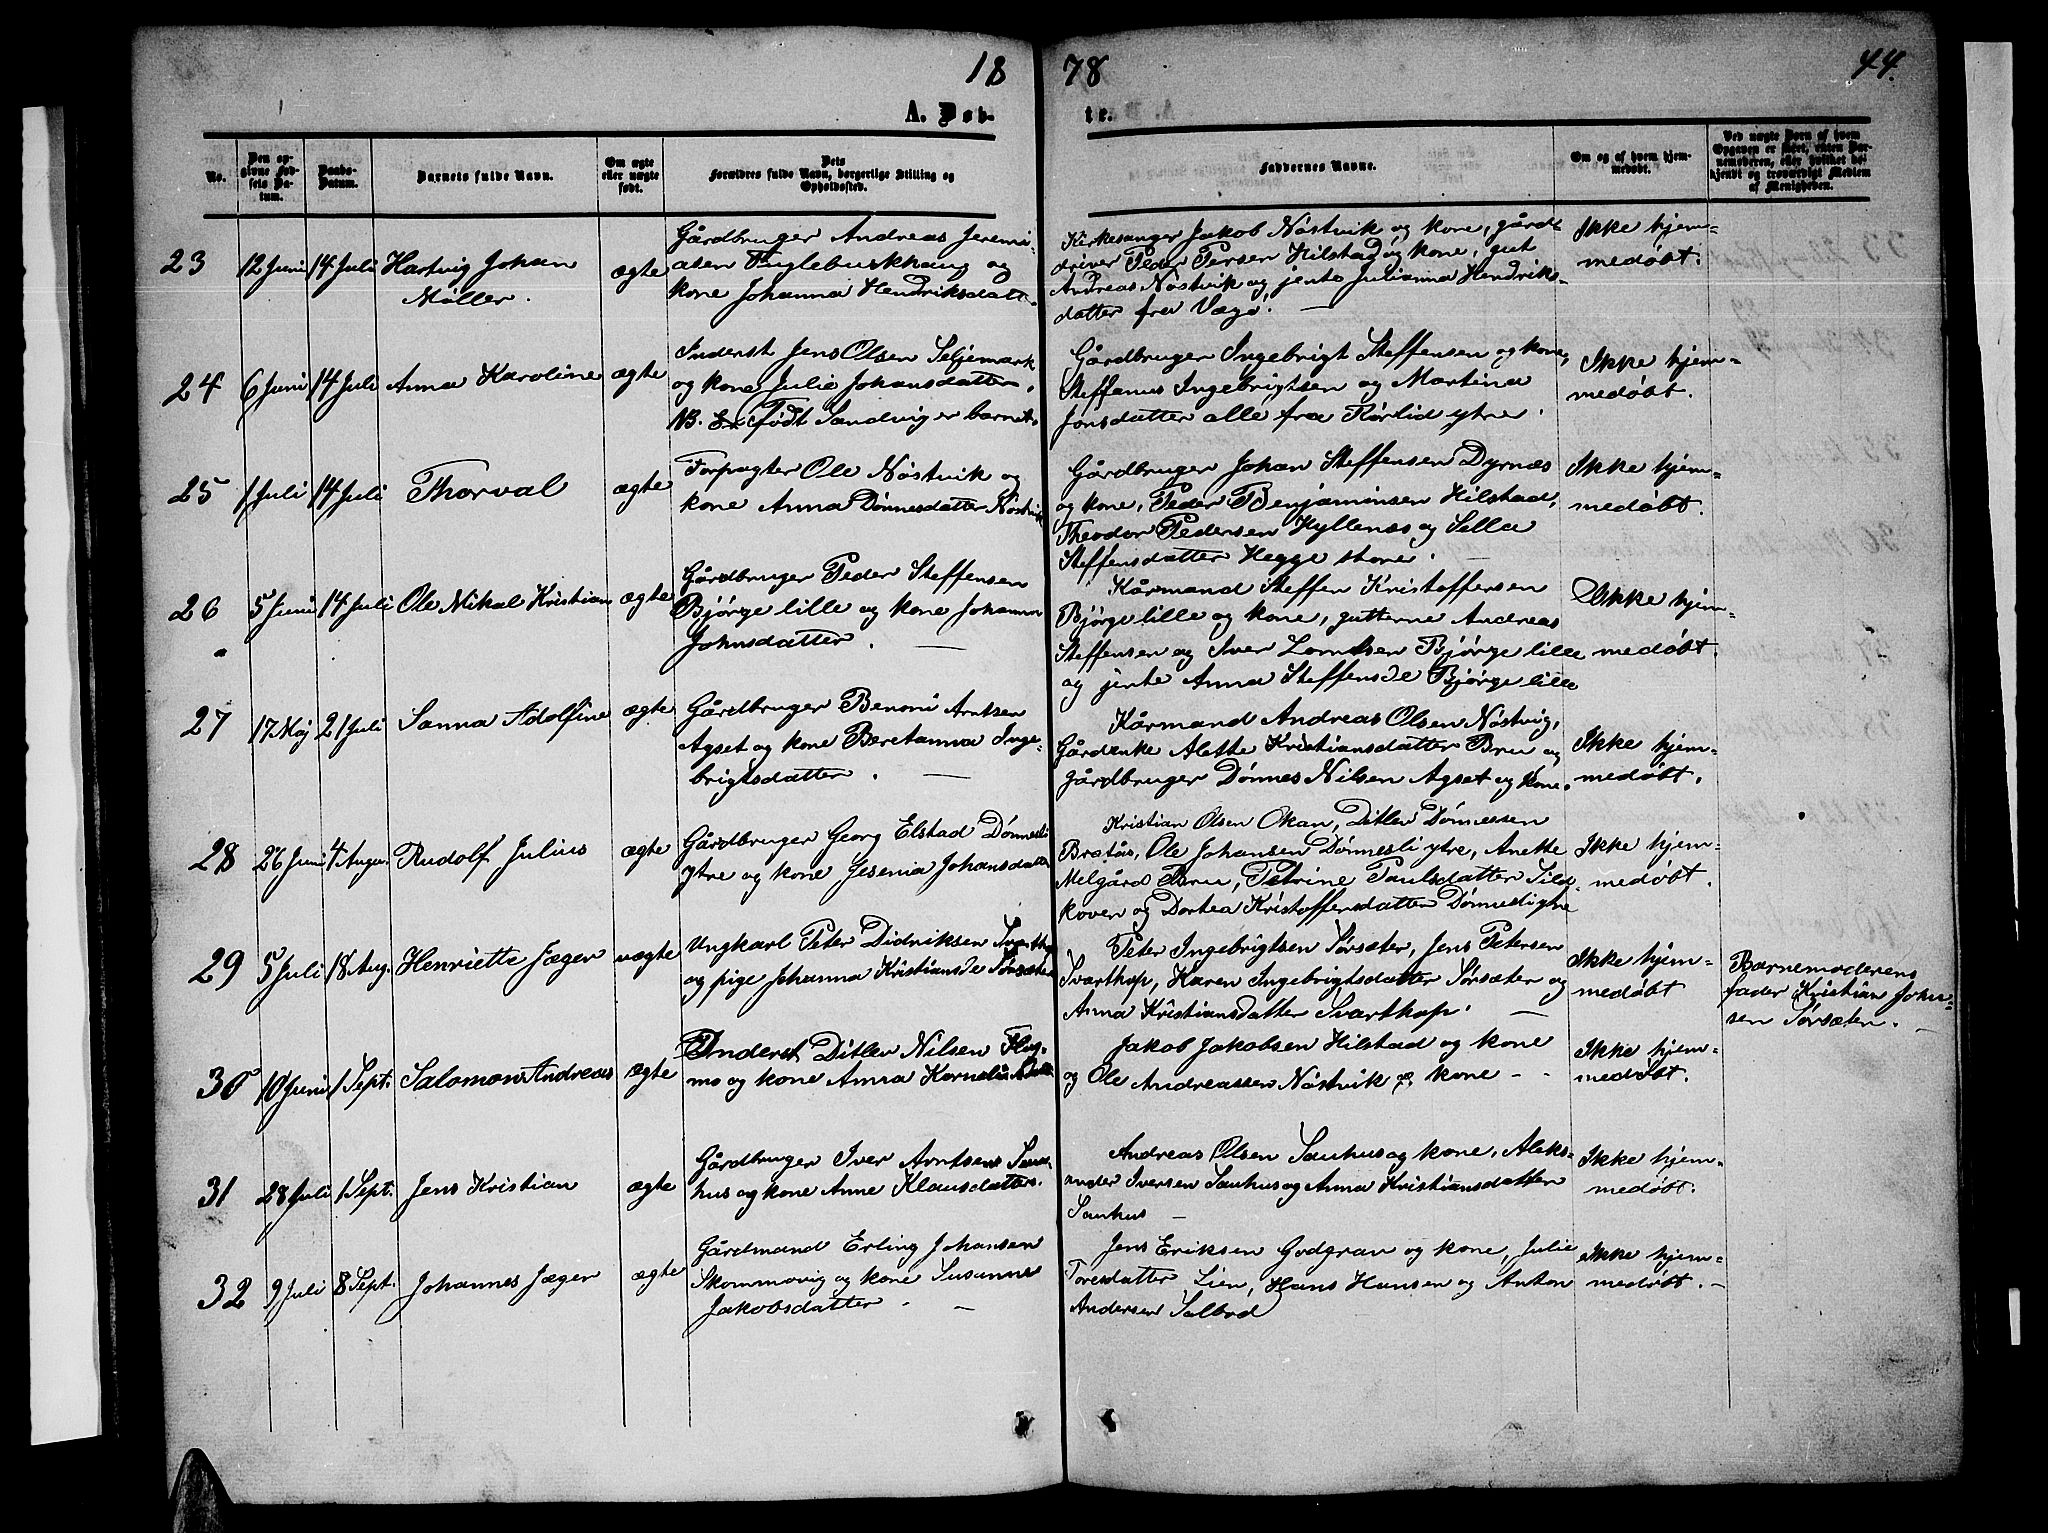 18 78 44.
A. Døb- te.
No.
Den op-
givne Fød-
sels Da-
tum.
Daabs-
Datum.
Barnets fulde Navn.
Om ægte
eller uægte
født.
Dets
Forældres fulde Navn, borgerlige Stilling og
Opholdssted.
Faddernes Navne.
Om og af hvem hjem-
medøbt.
Ved uægte Børn af hvem
Opgaven er skeet, enten Bar-
nemoderen, eller hvilket be-
kjendt og troværdigt Medlem
af Menigheden.
23 12 Juni 14 Juli Hartvig Johan
Møller.
ægte
Gårdbruger Andreas Jeremi-
asen Fuglebuskhaug og
kone Johanna Hendriksdatt.
Kirkesanger Jakob Nøstvik og kone, gård-
driver Peder Persen Hilstad og kone, gut
Andreas Nøstvik og jente Julianna Hendriks-
datter fra Vægø.
Ikke hjem-
medøbt.
24 6 Juni 14 Juli Anna Karoline ægte
Inderst Jens Olsen Seljemark
og kone Julie Johansdatter.
NB. født Sandvig er barnet.
Gårdbruger Ingebrigt Steffensen og kone,
Steffanus Ingebrigtsen og Martina
Jonsdatter alle fra Rørlid ytre.
Ikke hjem-
medøbt.
25 1 Juli 14 Juli Thorval ægte
Forpagter Ole Nøstvik og
kone Anna Dønnesdatter Nøstvik
Gårdbruger Johan Steffensen Dyrnæs
og kone, Peder Benjaminsen Hilstad,
Theodor Pedersen Hyllenæs og Sella
Steffensdatter Hegge store.
Ikke hjem-
medøbt.
26 5 Juni 14 Juli Ole Mikal Kristian ægte
Gårdbruger Peder Steffensen
Bjørge lille og kone Johanna
Johnsdatter.
Kårmand Steffen Kristoffersen
Bjørge lille og kone, gutterne Andreas
Steffensen og Iver Lorntsen Bjørge lille
og jente Anna Steffensde Bjørge lille
Ikke hjem-
medøbt.
27 17 Maj 21 Juli Sanna Adolfine ægte
Gårdbruger Benoni Arntsen
Agset og kone Beretanna Inge-
brigtsdatter.
Kårmand Andreas Olsen Nøstvig,
Gårdenke Alette Kristiansdatter Bru og
gårdbruger Dønnes Nilsen Agset og kone.
Ikke hjem-
medøbt.
28 26 Juni 4 Augu. Rudolf Julius ægte
Gårdbruger Georg Elstad Dønnesli
ytre og kone Jesenia Johansdatter
Kristian Olsen Okan, Ditlev Dønnessen
Bratås, Ole Johansen Dønnesli ytre, Anette
Melgård Bru, Petrine Paulsdatter Sild-
koven og Dortea Kristoffersdatter
Ikke hjem-
medøbt.
29 5 Juli 18 Aug. Henriette Jæger uægte
Ungkarl Peter Didriksen Svarthop
og pige Johanna Kristiansde Sørsæter
Peter Ingebrigtsen Sørsæter, Jens Petersen
Svarthop, Karen Ingebrigtsdatter Sørsæter og
Anna Kristiansdatter Svarthop.
Ikke hjem-
medøbt
Barnemoderens
fader Kristian John-
sen Sørsæter.
30 10 Juni 1 Sept. Salomon Andreas ægte
Inderst Ditlev Nilsen Flos-
mo og kone Anna Kornelia
Jakob Jakobsen Hilstad og kone
og Ole Andreassen Nøstvik og kone
Ikke hjem-
medøbt.
31 28 Juli 1 Sept. Jens Kristian ægte
Gårdbruger Iver Arntsen Sau-
hus og kone Anne Klausdatter.
Andreas Olsen Sauhus og kone, Aleks-
ander Iversen Sauhus og Anna Kristiansdatter
Sauhus
Ikke hjem-
medøbt.
32 9 Juli 8 Sept. Johannes Jæger ægte
Gårdmand Erling Johansen
Skommovig og kone Susanne
Jakobsdatter.
Jens Eriksen Godgrav og kone, Julie
Toresdatter Lien, Hans Hansen og Anton
Andersen Salbod
Ikke hjem-
medøbt.